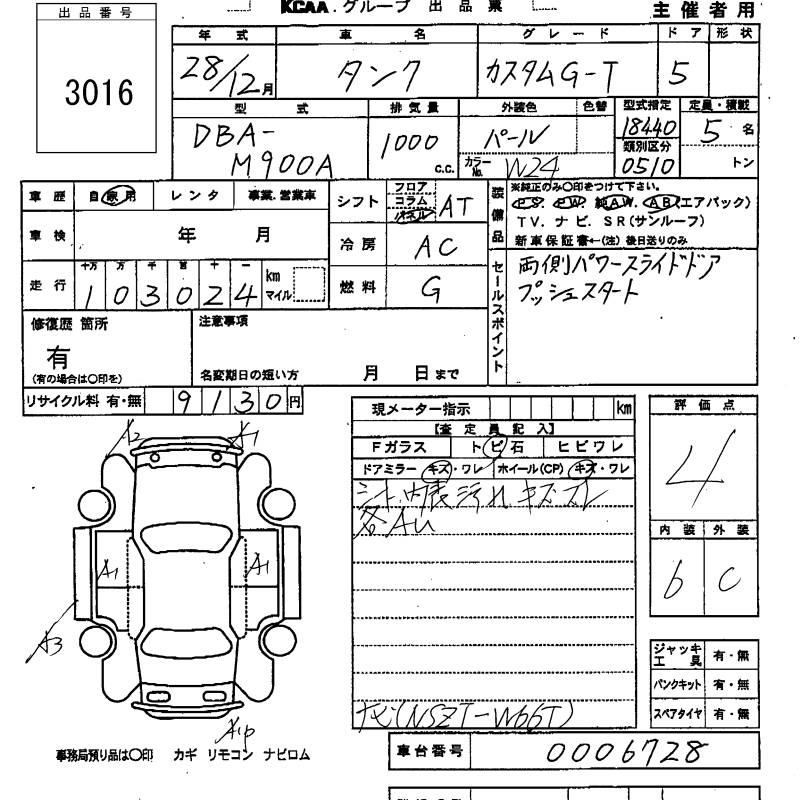 出品番号
3016
KCAA.グループ 出品票
主催者用
年式 車名 グレード ドア 形状
28/12月 タンク カスタムG-T 5
型式 排気量 外装色 色替 型式指定 定員・積載
DBA-
M900A
1000 c.c.
パール
カラーNo. W24
18440
類別区分
0510
5名
トン
車歴 自家用 レンタ 事業.営業車
車検 年 月
走行 十万 万 千 百 十 一
103024 km マイル
シフト フロア コラム パネル AT
冷房 AC
燃料 G
装備品
※純正のみ〇印をつけて下さい。
P.S. P.W. 純A.W. A.B(エアバック)
T.V. ナビ. S R(サンルーフ)
新車保証書←(注)後日送りのみ
セールスポイント
両側パワースライドドア
プッシュスタート
修復歴 箇所
有
(有の場合は〇印を)
注意事項
名変期日の短い方 月 日まで
リサイクル料 有・無 9130円
現メーター指示 km
【査定員記入】
Fガラス トビ石 ヒビワレ
ドアミラー キズ・ワレ ホイール(CP) キズ・ワレ
シート、内表汚れ キズ ズレ
各AU
ナビ(NSZT-W66T)
評価点
4
内装 外装
6 C
ジャッキ工具 有・無
パンクキット 有・無
スペアタイヤ 有・無
A2 A1
A1 A1
A3
A1P
事務局預り品は〇印 カギ リモコン ナビロム
車台番号 0006728